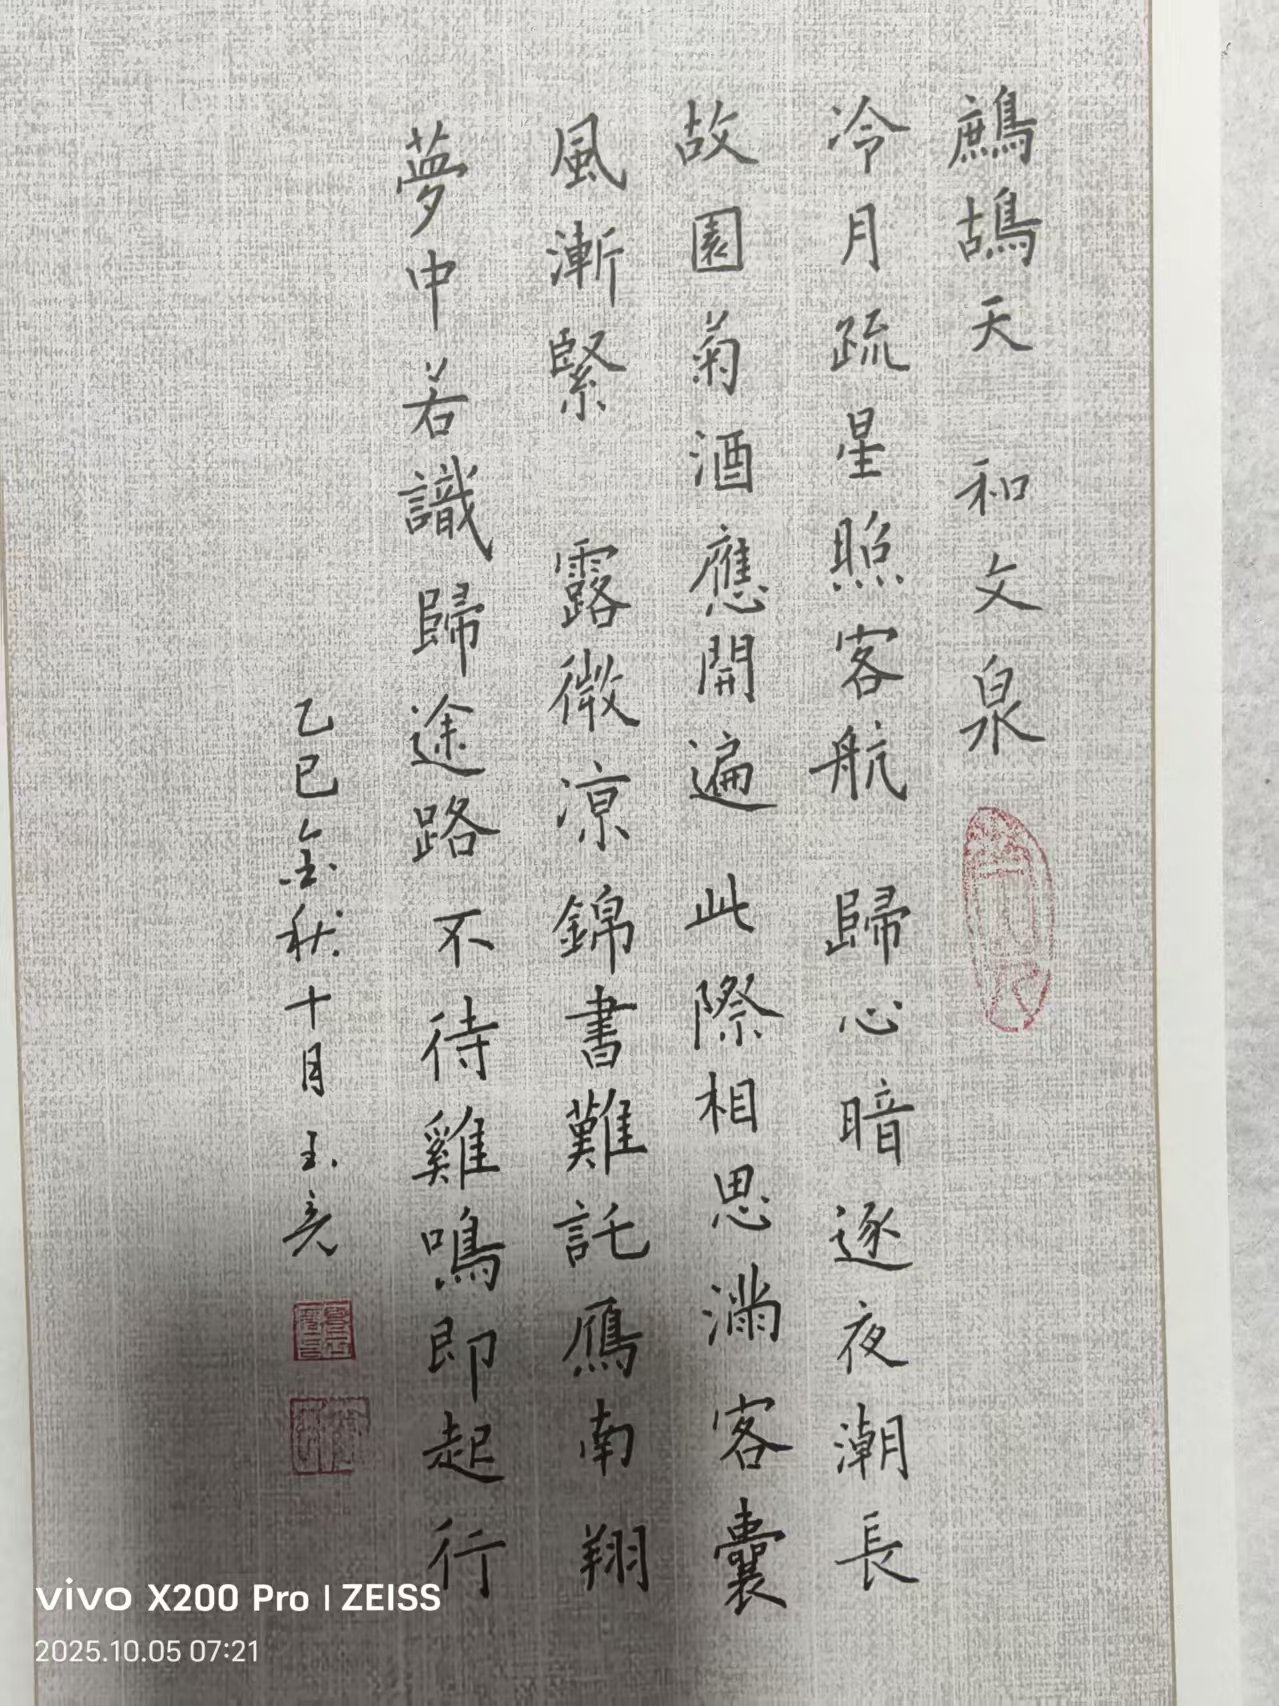 鷓鴣天 和文泉
冷月疏星照客航 歸心暗逐夜潮長
故園菊酒應開遍 此際相思滿客囊
風漸緊 露微涼 錦書難託雁南翔
夢中若識歸途路 不待雞鳴即起行
乙巳金秋十月 玉亮
vivo X200 Pro | ZEISS
2025.10.05 07:21